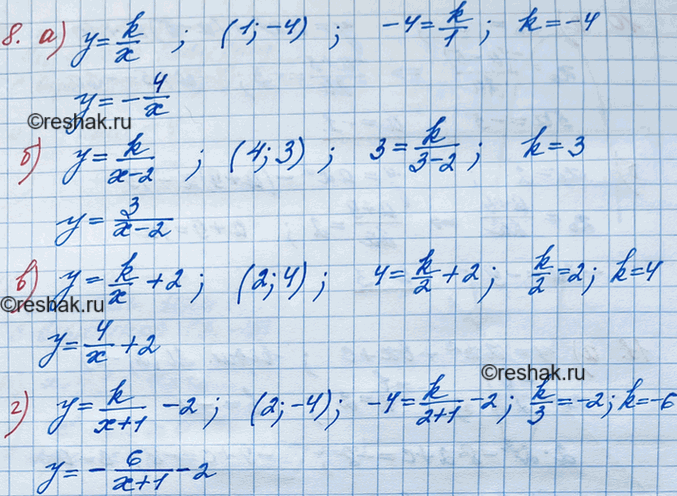 8. а) y = k/x ; (1; -4) ; -4 = k/1 ; k = -4
y = -4/x
©reshak.ru
б) y = k/(x-2) ; (4; 3) ; 3 = k/(3-2) ; k = 3
y = 3/(x-2)
в) y = k/x + 2 ; (2; 4) ; 4 = k/2 + 2 ; k/2 = 2 ; k = 4
©reshak.ru
y = 4/x + 2
©reshak.ru
г) y = k/(x+1) - 2 ; (2; -4) ; -4 = k/(2+1) - 2 ; k/3 = -2 ; k = -6
y = -6/(x+1) - 2